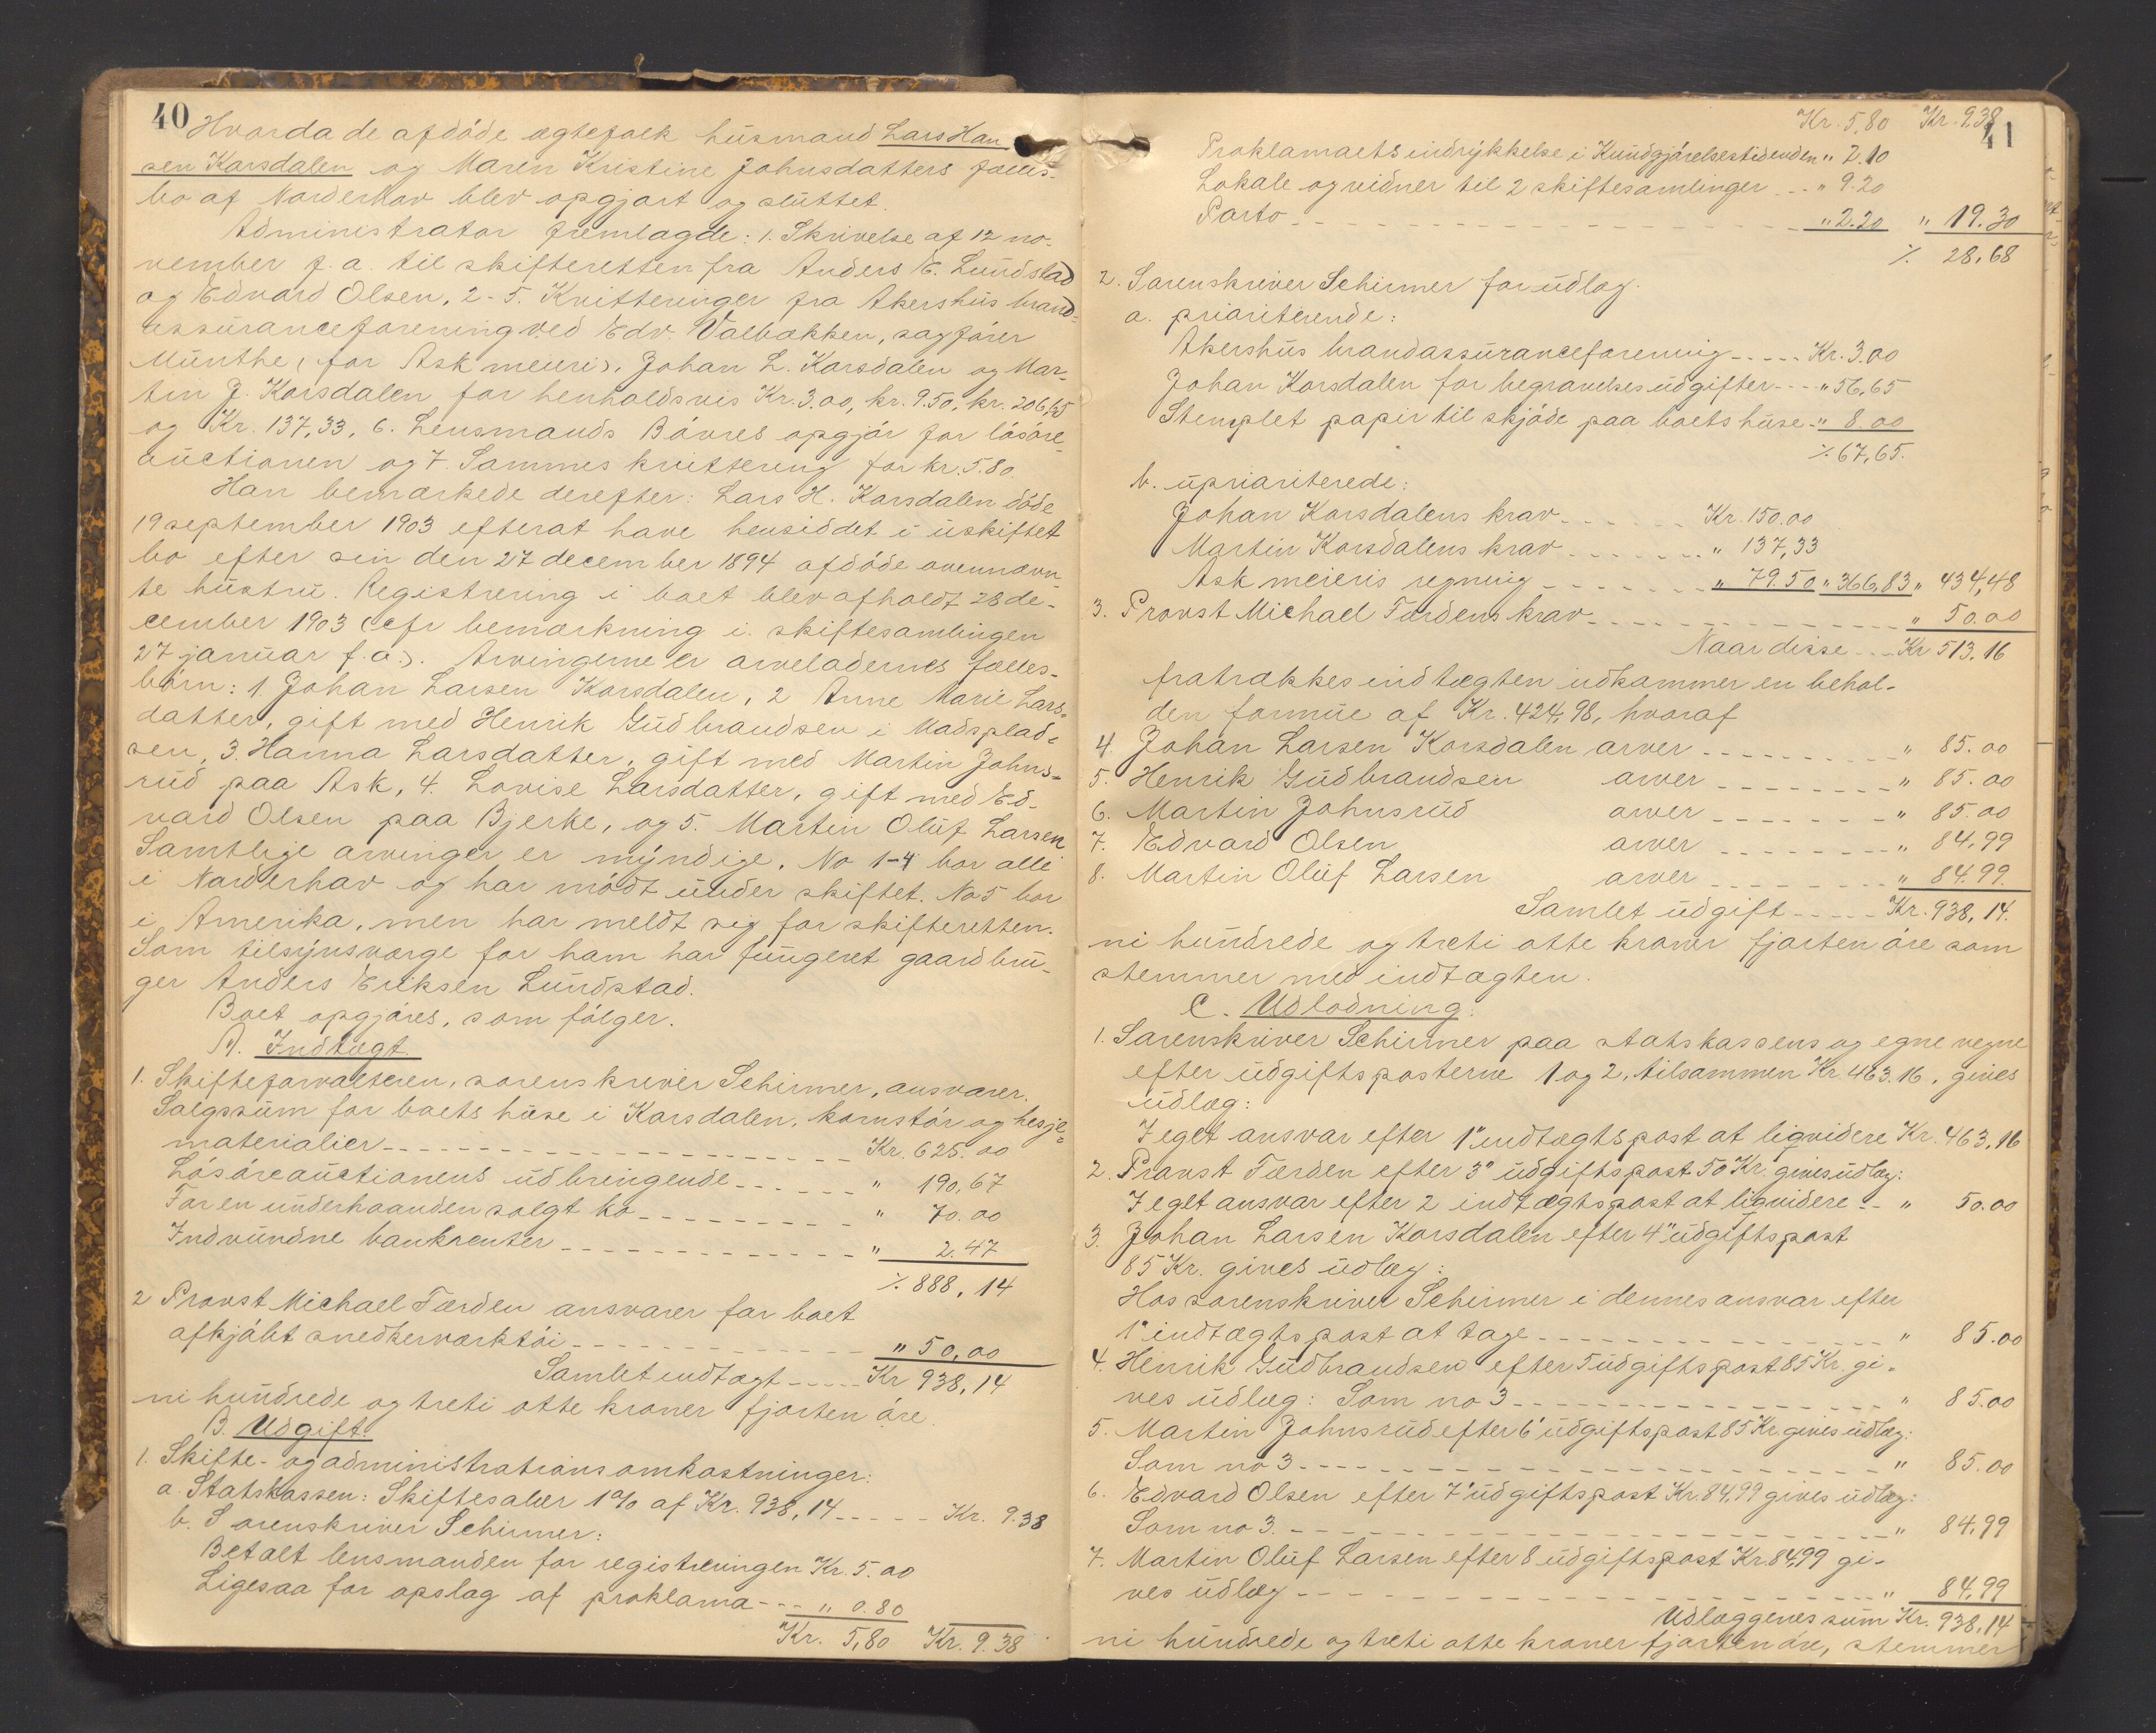 40
Hvorda de afdöde ægtefolk husmand Lars Han
sen Korsdalen og Maren Kristine Johnsdatters fælles-
bo af Norderhov blev opgjort og sluttet.
Administrator fremlagde: 1. Skrivelse af 12 no-
vember f. a. til skifteretten fra Anders E. Lundstad
og Edvard Olsen, 2-5. Kvitteringer fra Akershus brand-
assuranceforening ved Edv. Valbækken, sagförer
Münthe (for Ask meieri), Johan L. Korsdalen og Mar-
tin J. Korsdalen for henholdsvis Kr. 3,00, kr. 9.50, kr. 206,65
og Kr. 137,33, 6. Lensmands Bövres opgjör for lösöre
auctionen og 7 Sammes kvittering for kr. 5.80.
Han bemærkede derefter: Lars H. Korsdalen döde
19 september 1903 efterat have hensiddet i uskiftet
bo efter sin den 27 december 1894 afdöde ovennævn-
te hustru. Registrering i boet blev afholdt 28 de-
cember 1903 (cfr bemærkning i skiftesamlingen
27 januar f. a.). Arvingerne er arveladernes fælles-
börn: 1. Johan Larsen Korsdalen, 2 Anne Marie Lars-
datter, gift med Henrik Gudbrandsen i Madsplad-
sen, 3. Hanna Larsdatter, gift med Martin Johns-
rud paa Ask, 4. Lovise Larsdatter, gift med Ed-
vard Olsen paa Bjerke, og 5. Martin Oluf Larsen
Samtlige arvinger er myndige. No 1-4 bor alle
i Norderhov og har mödt under skiftet. No 5 bor
i Amerika, men har meldt sig for skifteretten.
Som tilsynsværge for ham har fungeret gaardbru-
ger Anders Eriksen Lundstad.
Boet opgjöres, som fölger.
A. Indtægt.
1. Skifteforvalteren, sorenskriver Schirmer, ansvarer.
Salgssum for boets huse i Korsdalen, kornstör og hesje-
materialier ---- Kr. 625.00
Lösöreauctionens udbringende ---- " 190,67
For en underhaanden solgt ko ---- " 70.00
Indvundne bankrenter ---- " 2,47
⁒ 888,14
2 Provst Michael Færden ansvarer for boet
afkjöbt snedkerværktöi ---- " 50,00
Samlet indtægt ---- Kr 938,14
ni hundrede og treti otte kroner fjorten öre.
B. Udgift.
1. Skifte- og administrationsomkostninger:
a. Statskassen: Skiftesalær 1% af Kr. 938,14 ---- Kr. 9.38
b. Sorenskriver Schirmer:
Betalt lensmanden for registreringen Kr. 5.00
Ligesaa for opslag af proklama --- " 0.80
Kr. 5,80 Kr. 9.38
Kr. 5,80 Kr. 9.38
41
Proklamaets indrykkelse i Kundgjörelsestidenden " 2.10
Lokale og vidner til 2 skiftesamlinger --- " 9.20
Porto ---- " 2.20 " 19.30
⁒ 28,68
2. Sorenskriver Schirmer for udlæg.
a. prioriterende:
Akershus brandassuranceforening ---- Kr. 3.00
Johan Korsdalen for begravelsesudgifter ---- " 56,65
Stemplet papir til skjöde paa boets huse - " 8.00
⁒ 67,65.
b. uprioriterede:
Johan Korsdalens krav ---- Kr. 150.00
Martin Korsdalens krav ---- " 137,33
Ask meieris regning ---- " 79.50 " 366,83 " 434,48
3. Provst Michael Færdens krav ---- " 50.00
Naar disse --- Kr 513,16
fratrækkes indtægten udkommer en behol-
den formue af Kr. 424,98, hvoraf
4. Johan Larsen Korsdalen arver ---- " 85.00
5. Henrik Gudbrandsen arver ---- " 85.00
6. Martin Johnsrud arver ---- " 85.00
7. Edvard Olsen arver ---- " 84,99
8. Martin Oluf Larsen arver ---- " 84.99.
Samlet udgift ---- Kr. 938,14.
ni hundrede og treti otte kroner fjorten öre som
stemmer med indtægten.
C. Udlodning.
1. Sorenskriver Schirmer paa statskassens og egne vegne
efter udgiftsposterne 1 og 2, tilsammen Kr. 463.16, gives
udlæg:
I eget ansvar efter 1" indtægtspost at liqvidere Kr. 463,16
2. Provst Færden efter 3" udgiftspost 50 Kr. gives udlæg:
I eget ansvar efter 2 indtægtspost at liqvidere -- " 50.00
3. Johan Larsen Korsdalen efter 4" udgiftspost
85 Kr. gives udlæg:
Hos sorenskriver Schirmer i dennes ansvar efter
1" indtægtspost at tage ---- " 85.00
4. Henrik Gudbrandsen efter 5 udgiftspost 85 Kr. gi-
ves udlæg: Som no 3 ---- " 85.00
5. Martin Johnsrud efter 6' udgiftspost 85 Kr gives udlæg:
Som no 3 ---- " 85.00
6. Edvard Olsen efter 7" udgiftspost Kr. 84,99 gives udlæg:
Som no 3. ---- " 84,99
7. Martin Oluf Larsen efter 8 udgiftspost Kr 84,99 gi-
ves udlæg ---- " 84,99
Udlæggenes sum Kr. 938,14
ni hundrede og treti otte kroner fjorten öre, stemmer